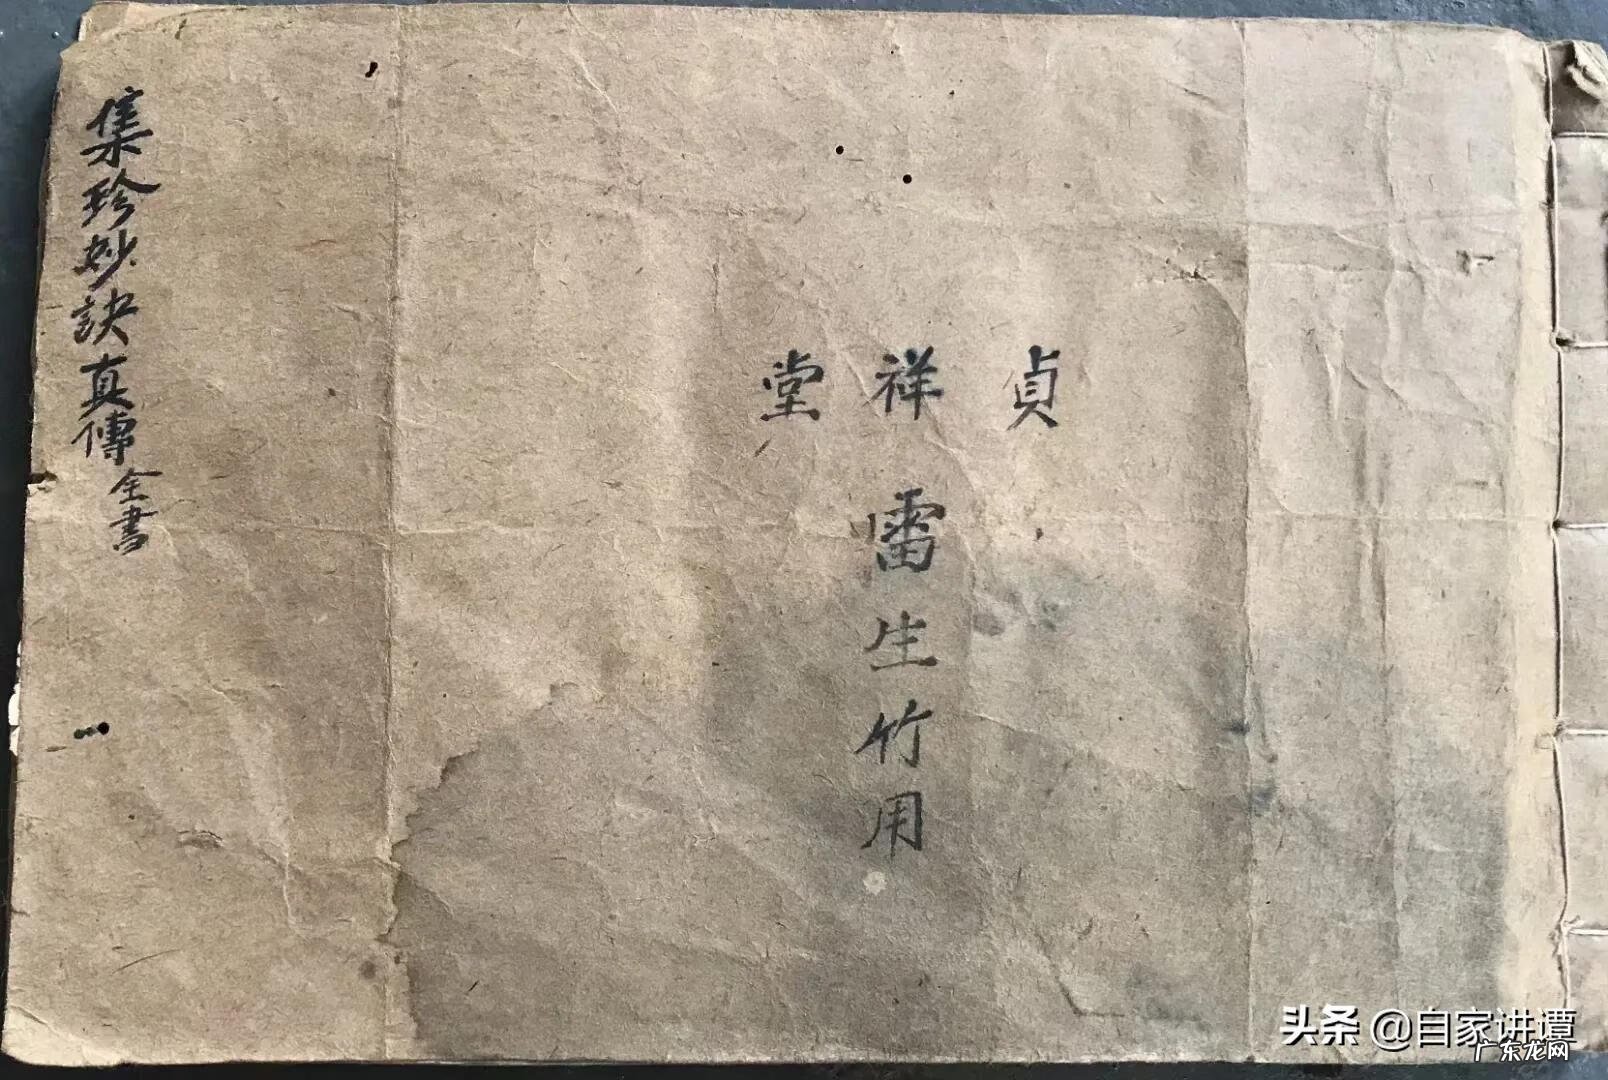 貞祥堂
雷生竹用
集珍妙訣真傳全書
头条 @自家讲谭
广东龙网